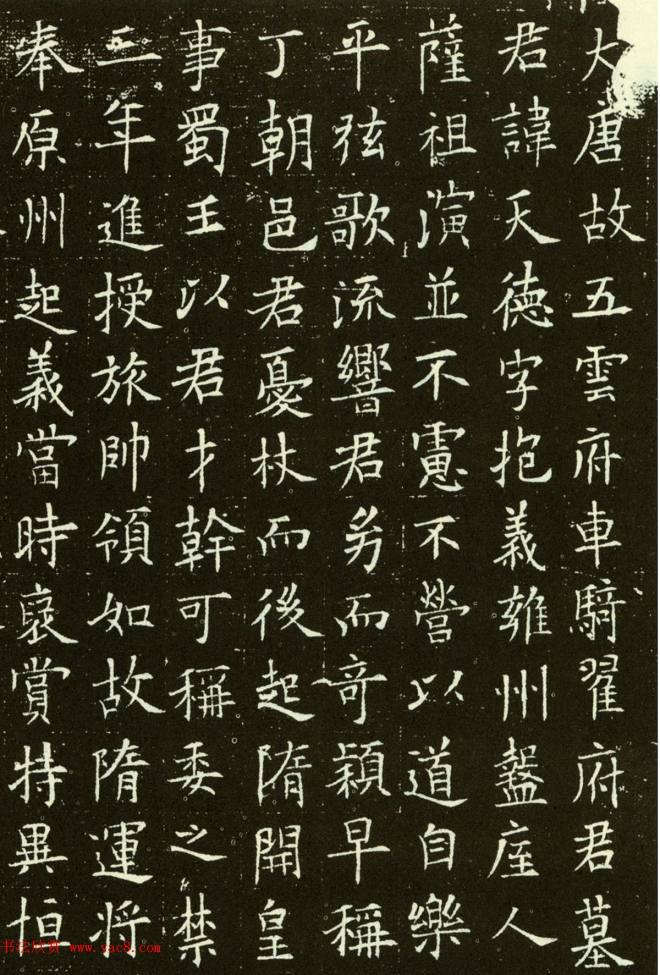 大唐故五雲府車騎翟府君墓
君諱天德字抱義雍州盩庢人
薩祖演並不慮不營以道自樂
平弦歌流響君㓜而奇穎早稱
丁朝邑君憂杖而後起隋開皇
事蜀王以君才幹可稱委之禁
三年進授旅帥領如故隋運将
奉原州起義當時裒賞特異恒
书法欣赏 www.yac8.com